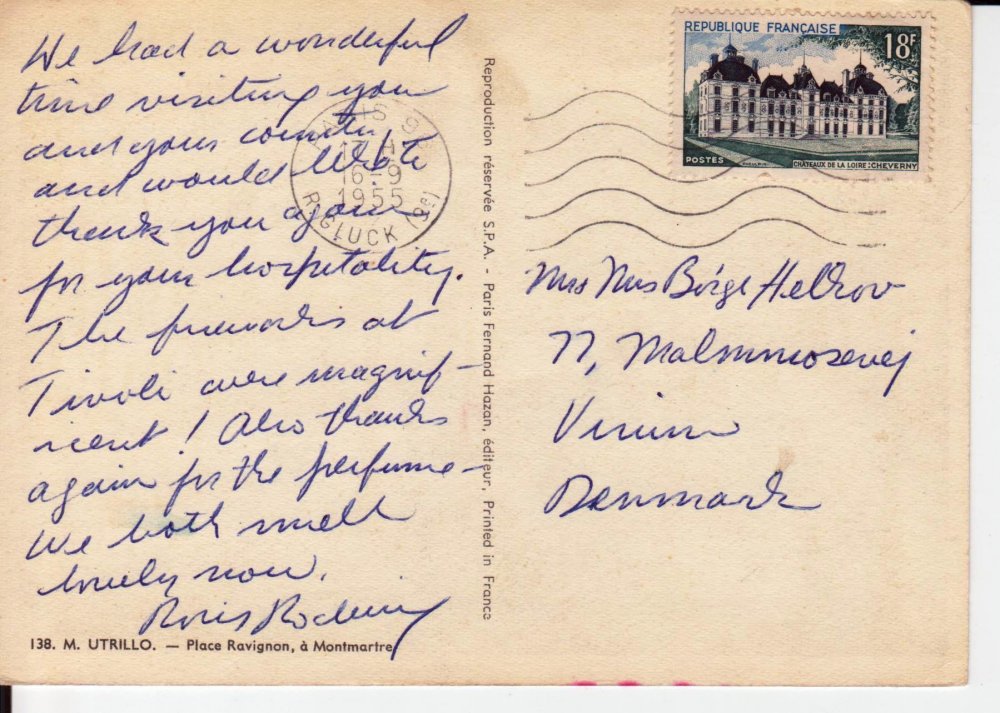 We had a wonderful
time visiting you
and your country
and would like to
thank you again
for your hospitality.
The fireworks at
Tivoli were magnif-
icent! Also thanks
again for the perfume -
We both smell
lovely now.
138. M. UTRILLO. — Place Ravignon, à Montmartre
Reproduction réservée S.P.A. - Paris Fernand Hazan, éditeur, Printed in France
REPUBLIQUE FRANÇAISE
18F
POSTES
CHÂTEAUX DE LA LOIRE: CHEVERNY
PARIS
16-9
1955
R. GLUCK
Børge Helkov
77, Malmmosevej
Virum
Denmark